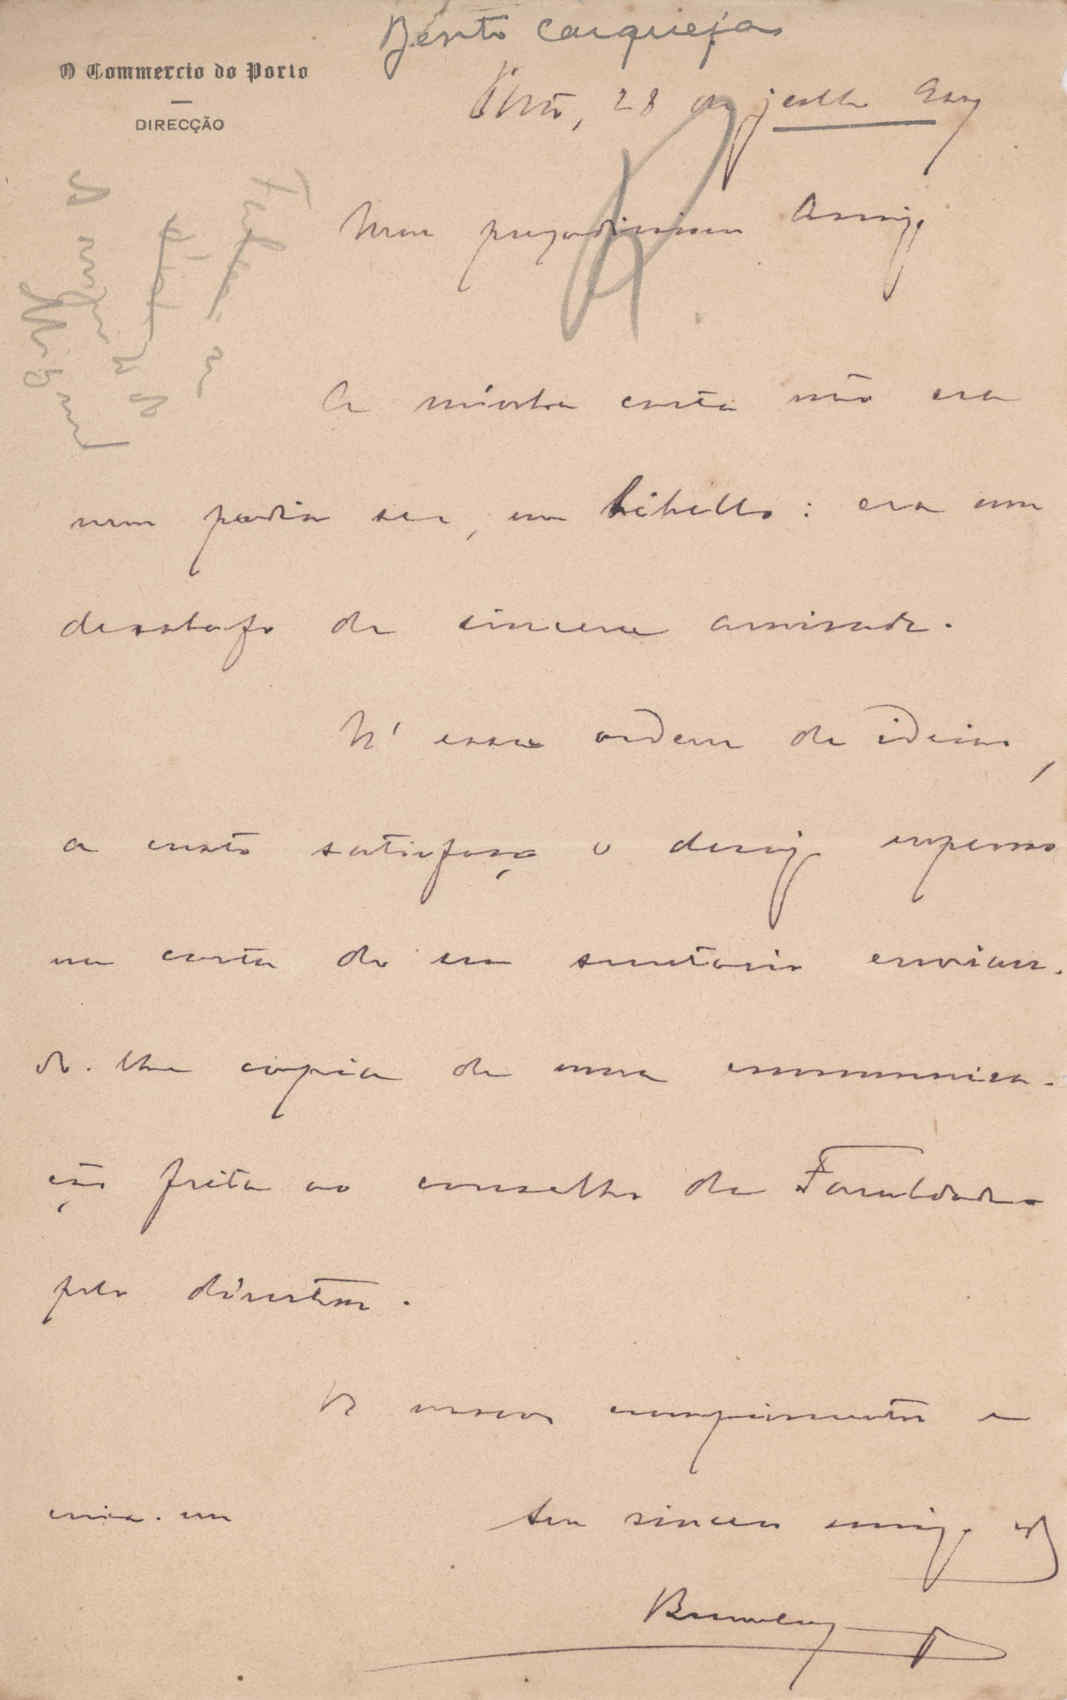 Bento Carqueja
O Commercio do Porto
DIRECÇÃO
Porto, 28 de julho
Meu presadissimo Amigo
A minha carta não era
nem podia ser, um libello: era um
desabafo de sincera amisade.
N'essa ordem de ideias,
a custo satisfaço o desejo expresso
na carta do seu secretario envian-
do-lhe copia de uma communica-
ção feita ao conselho da Faculdade
pelo director.
cumprimentos e
creia-me
seu sincero amigo